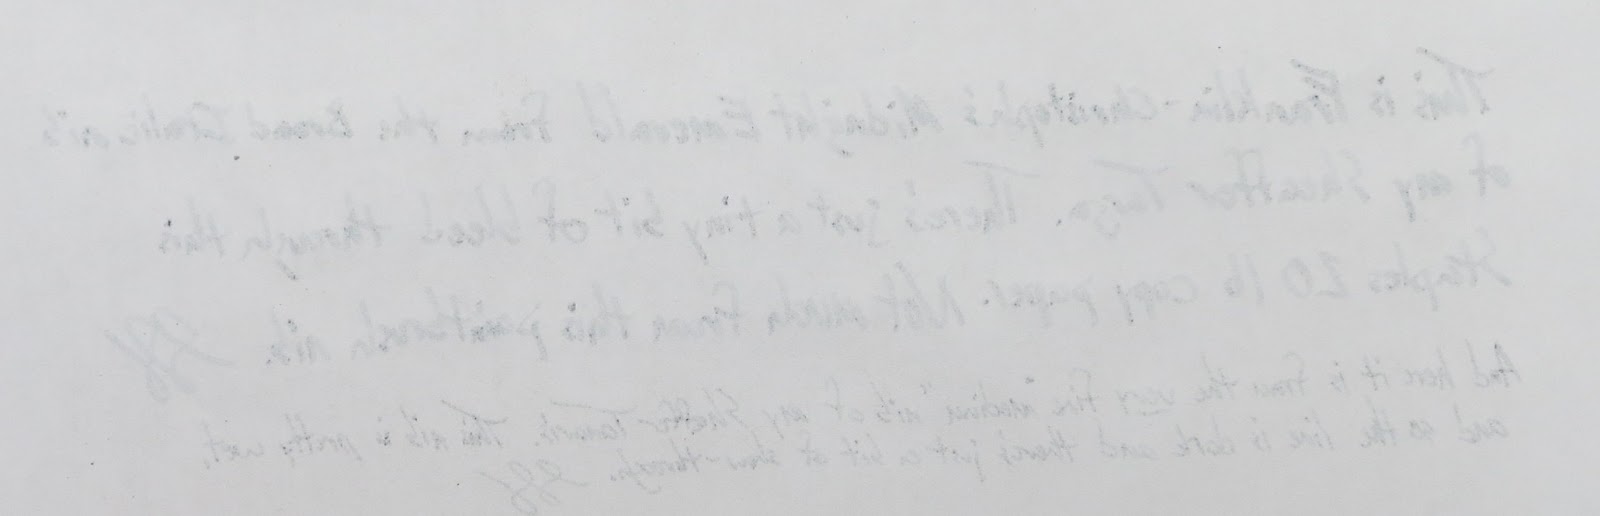 This is Franklin-Christoph's Midnight Emerald from the broad italic nib
of my Sheaffer Taranis. There's just a tiny bit of bleed through this
Staples 20 lb copy paper. Not much from this paintbrush nib.
And here it is from the very fine "medium" nib of my Sheaffer Taranis. This nib is pretty wet,
and so the line is dark and there's just a bit of show-through.